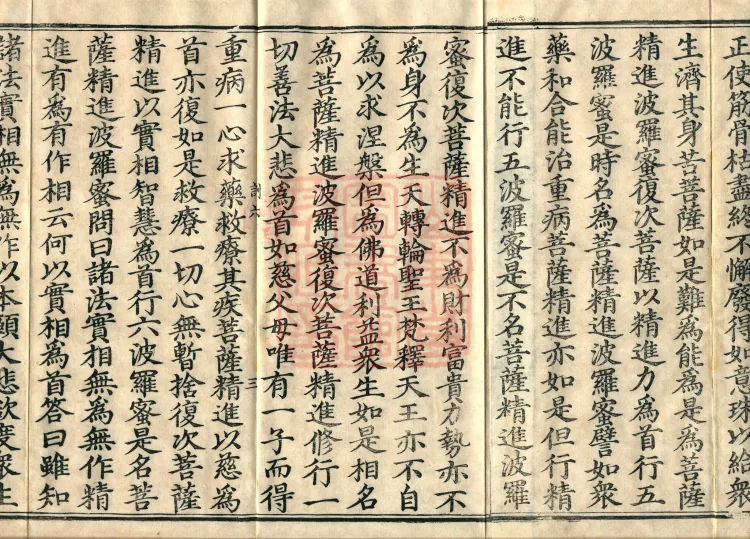 正使筋骨枯盡終不懈廢得如意珠以給眾
生濟其身苦菩薩如是難為能為是為菩薩
精進波羅蜜復次菩薩以精進力為首行五
波羅蜜是時名為菩薩精進波羅蜜譬如眾
藥和合能治重病菩薩精進亦如是但行精
進不能行五波羅蜜是不名菩薩精進波羅
蜜復次菩薩精進不為財利富貴力勢亦不
為身不為生天轉輪聖王梵釋天王亦不自
為以求涅槃但為佛道利益眾生如是相名
為菩薩精進波羅蜜復次菩薩精進修行一
切善法大悲為首如慈父母唯有一子而得
六 三
重病一心求藥救療其疾菩薩精進以慈為
首亦復如是救療一切心無暫捨復次菩薩
精進以實相智慧為首行六波羅蜜是名菩
薩精進波羅蜜問曰諸法實相無為無作精
進有為有作相云何以實相為首答曰雖知
諸法實相無為無作以本願大悲欲度眾生